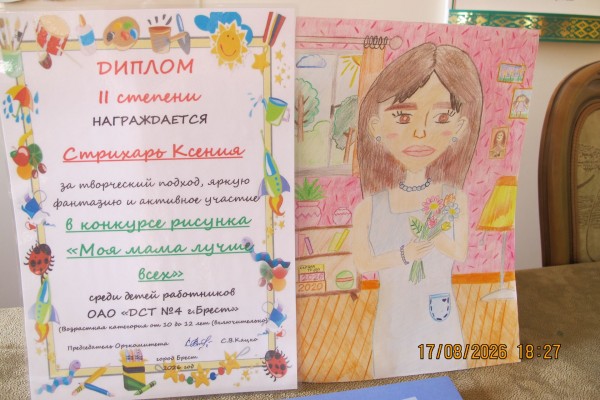 ДИПЛОМ
II степени
НАГРАЖДАЕТСЯ
Стрихарь Ксения
за творческий подход, яркую
фантазию и активное участие
в конкурсе рисунка
«Моя мама лучше
всех»
среди детей работников
ОАО «ДСТ №4 г.Брест»
(Возрастная категория от 10 до 12 лет (включительно)
Председатель Оргкомитета С.В.Кацко
город Брест
год
2020
17/08/2026 18:27